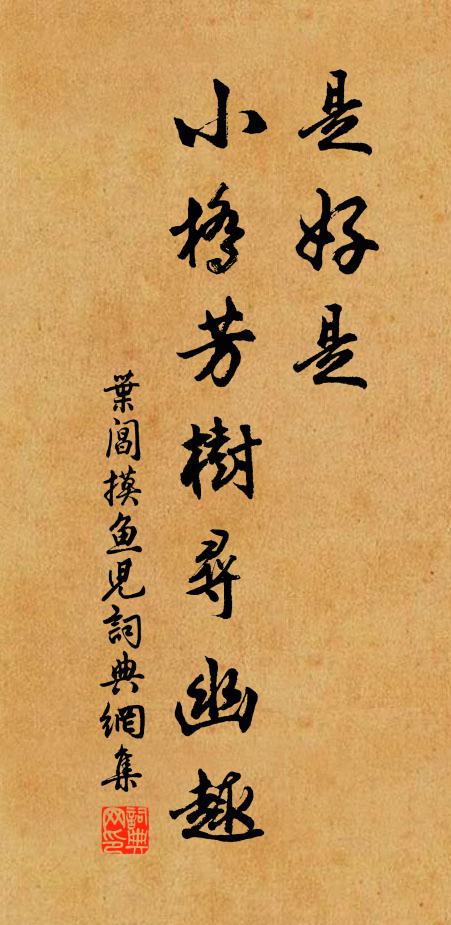 是好是
小橋芳樹尋幽趣
葉閶摸魚兒詞典網集
詞典
网印